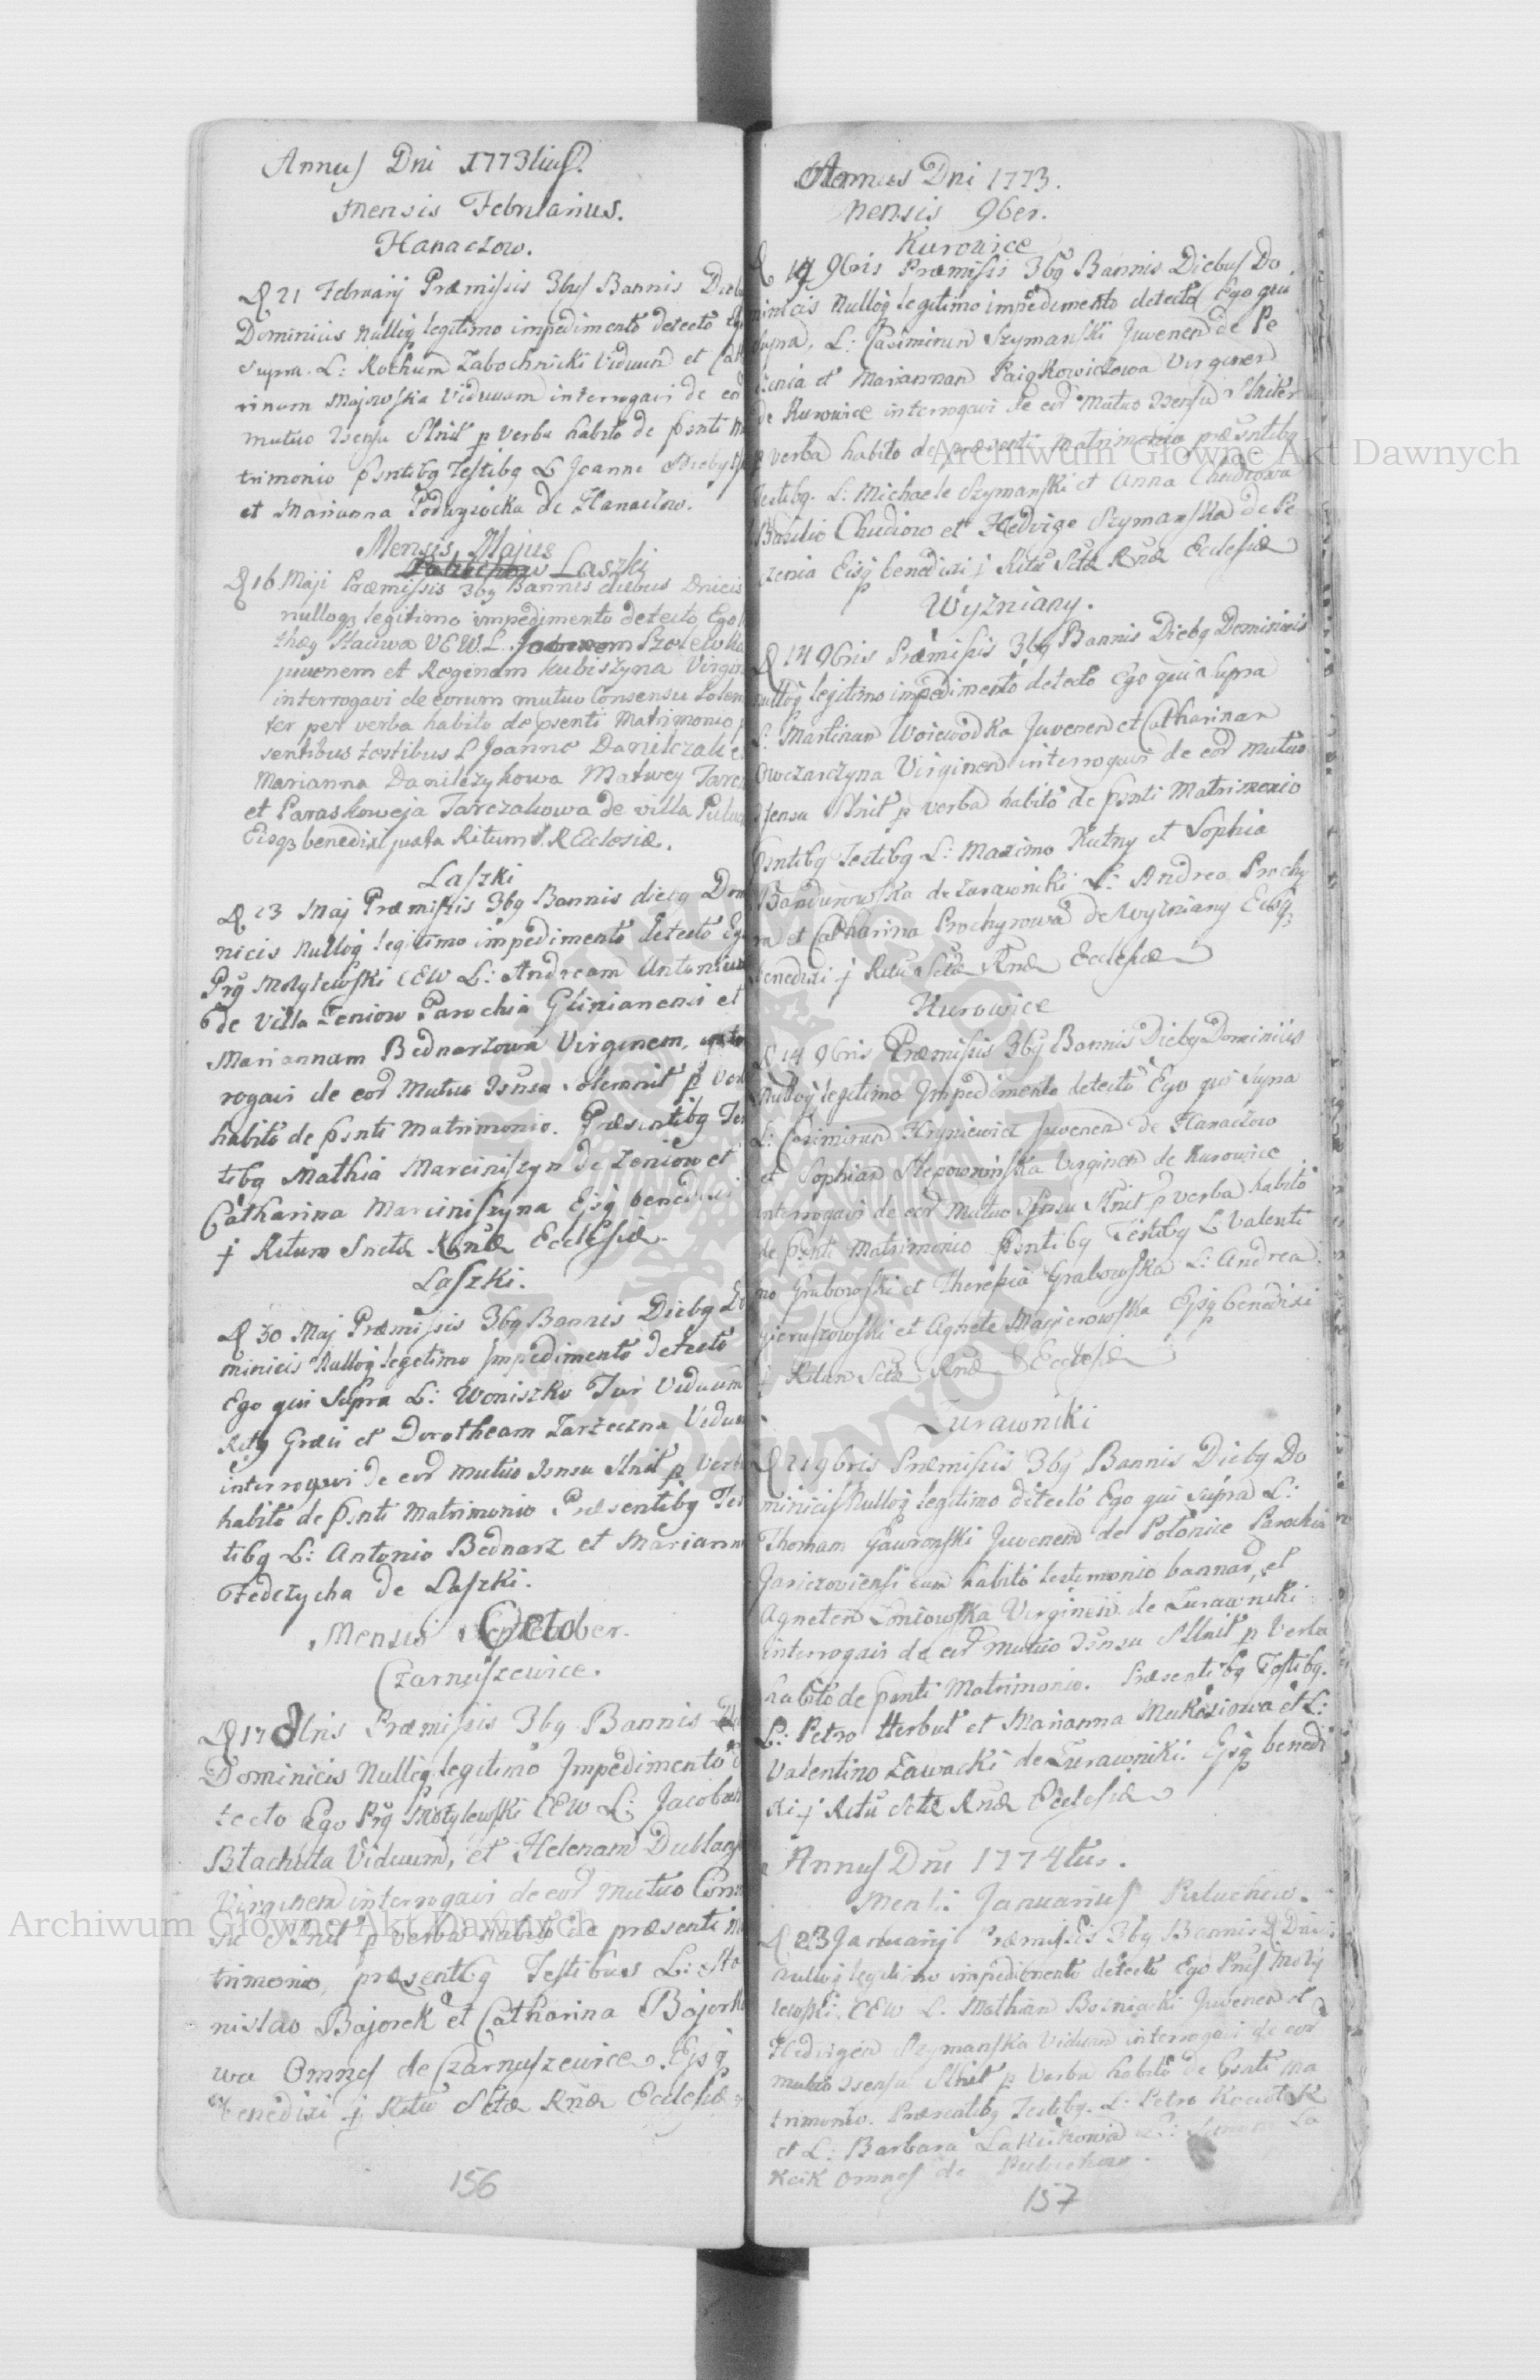 Annus Dni 1773tius.
Mensis Februarius.
Hanaczow.
D 21 Februarij Præmissis 3bus Bannis Dieb
Dominicis nulloq legitimo impedimento detecto Ego
supra. L: Rochum Zabochnicki Viduum et Cath
rinam Majowska Viduam interrogavi de eor
mutuo Jsensu Slnit p verba habito de psnti Ma
trimonio psntibq Testibq L Joanne
et Marianna Podwysocka de Hanaczow.
Mensis Majus
Laszki
D 16 Maji Præmissis 3bq Bannis diebus Dnicis
nulloqz legitimo impedimento detecto Ego
VEW. L. Szolewka
juvenem et Reginam Kubiszyna Virgin
interrogavi de eorum mutuo Consensu Solem
ter per verba habito de psenti Matrimonio p
sentibus testibus L Joanne Danilczak et
Marianna Danilczykowa Matwey Tarcz
et Paraskoweja Tarczakowa de villa Puluc
Eisqz benedixi juxta Ritum S. R Ecclesiæ.
Laszki
D 23 Maj Præmissis 3bq Bannis diebq Dom
nicis Nulloq legitimo impedimento detecto Ego
Prq Motylewski CEW L: Andream Antoniu
de Villa Zeniow Parochia Glinianensi et
Mariannam Bednarzowa Virginem, inter
rogavi de eor Mutuo Jsnsu solemnit p verb
habito de psnti Matrimonio. Præsentibq Tes
tibq Mathia Marciniszyn de Zeniow et
Catharina Marciniszyna Ejsq benedixi
j Ritum Snctæ Rnæ Ecclesiæ.
Laszki.
D 30 Maj Præmissis 3bq Bannis Diebq Do
minicis Nulloq legetimo Jmpedimento detecto
Ego qui Supra L: Woniszko Tur Viduum
Ritq Græci et Dorotheam Zarzeczna Viduam
interrogavi de eor mutuo Jsnsu Slnit p verba
habito de psnti Matrimonio Præsentibq Tes
tibq L: Antonio Bednarz et Mariann
Fedczycha de Laszki.
Mensis October.
Czarnuszewice.
D 17 8bris Præmissis 3bq Bannis Di
Dominicis Nulloq legitimo Jmpedimento de
tecto Ego Prq Motylewski CEW L: Jacobum
Blachuta Viduum, et Helenam Dublan
Virginem interrogavi de eor mutuo Conse
su Slnit p verba habito de præsenti Ma
trimonio, præsentibq Testibus L: Sta
nislao Bajorek et Catharina Bajorko
wa Omnes de Czarnuszewice. Ejsq
benedixi j Ritu Sctæ Rnæ Eccleſiæ
156
Annus Dni 1773.
Mensis 9ber.
Kurowice
D 14 9bris Præmissis 3bq Bannis Diebus Do
minicis Nulloq legitimo impedimento detecto Ego qui
supra, L: Casimirum Szymanski Juvenem de Pe
czenia et Mariannam Paigkowiczowa Virginem
de Kurowice interrogavi de eor Mutuo Jsensu Slniter
p verba habito de præsenti Matrimonio præsntibq
Testibq. L: Michaele Szymanski et Anna Chudiowa
Basilio Chudiow et Hedvige Szymanska de Pe
czenia Eisq benedixi j Ritu Sctæ Rnæ Ecclesiæ
Wyzniany.
D 14 9bris Præmissis 3bq Bannis Diebq Dominicis
nulloq legitimo impedimento detecto Ego qui Supra
L: Martinum Woiewodka Juvenem et Catharinam
Owczarczyna Virginem interrogavi de eor mutuo
Jsensu Slnit p verba habito de psnti Matrimonio
psntibq Testibq L: Maximo Kutny et Sophia
Bandurowska de Zurawniki L: Andrea Prochy
ra et Catharina Prochyrowa de Wyzniany Eisqz
benedixi j Ritu Sctæ Rnæ Ecclesiæ
Kurowice
D 14 9bris Præmissis 3bq Bannis Diebq Dominicis
Nulloq legitimo Jmpedimento detecto Ego qui supra
L: Casimirum Hryniewicz Juvenem de Hanaczow
et Sophiam Slepowninska Virginem de Kurowice
interrogavi de eor Mutuo Jsnsu Slnit p verba habito
de psnti Matrimonio psntibq Testibq L Valenti
no Grabowski et Theresia Grabowska L: Andrea
Gieruszowski et Agnete Magierowska Ejsq benedixi
j Ritum Sctæ Rnæ Ecclesiæ
Zurawniki
D 21 9bris Præmissis 3bq Bannis Diebq Do
minicis Nulloq legitimo detecto Ego qui supra L:
Thomam Gawronski Juvenem de Polonice Parochia
Jariczoviensi cum habito testimonio bannar, et
Agnetem Zoniowska Virginem de Zurawniki
interrogavi de eor mutuo Jsnsu Sllnit p Verba
habito de psnti Matrimonio. Præsentibq Testibq.
L: Petro Herbut et Marianna Mukosiowa et L:
Valentino Zawacki de Zurawniki. Ejsq benedi
xi j Ritu Sctæ Rnæ Ecclesiæ
Annus Dni 1774tus.
Mensis Januarius Puluchow.
D 23 Januarij Præmissis 3bq Bannis D Dnicis
Nulloq legitimo impedimento detecto Ego Prus Moty
lewski. CEW L. Mathiam Bosniacki Juvenem et
Hedvigem Szymanska Viduam interrogavi de eor
mutuo Jsensu Slnit p Verba habito de psnti Ma
trimonio. Præsentibq Testibq. L. Petro Kocwtek
et L: Barbara Lakiikowia L: La
kcik Omnes de Puluchow.
157
Archiwum Główne Akt Dawnych
Archiwum Główne Akt Dawnych
ARCHIWUM GŁÓWNE AKT DAWNYCH